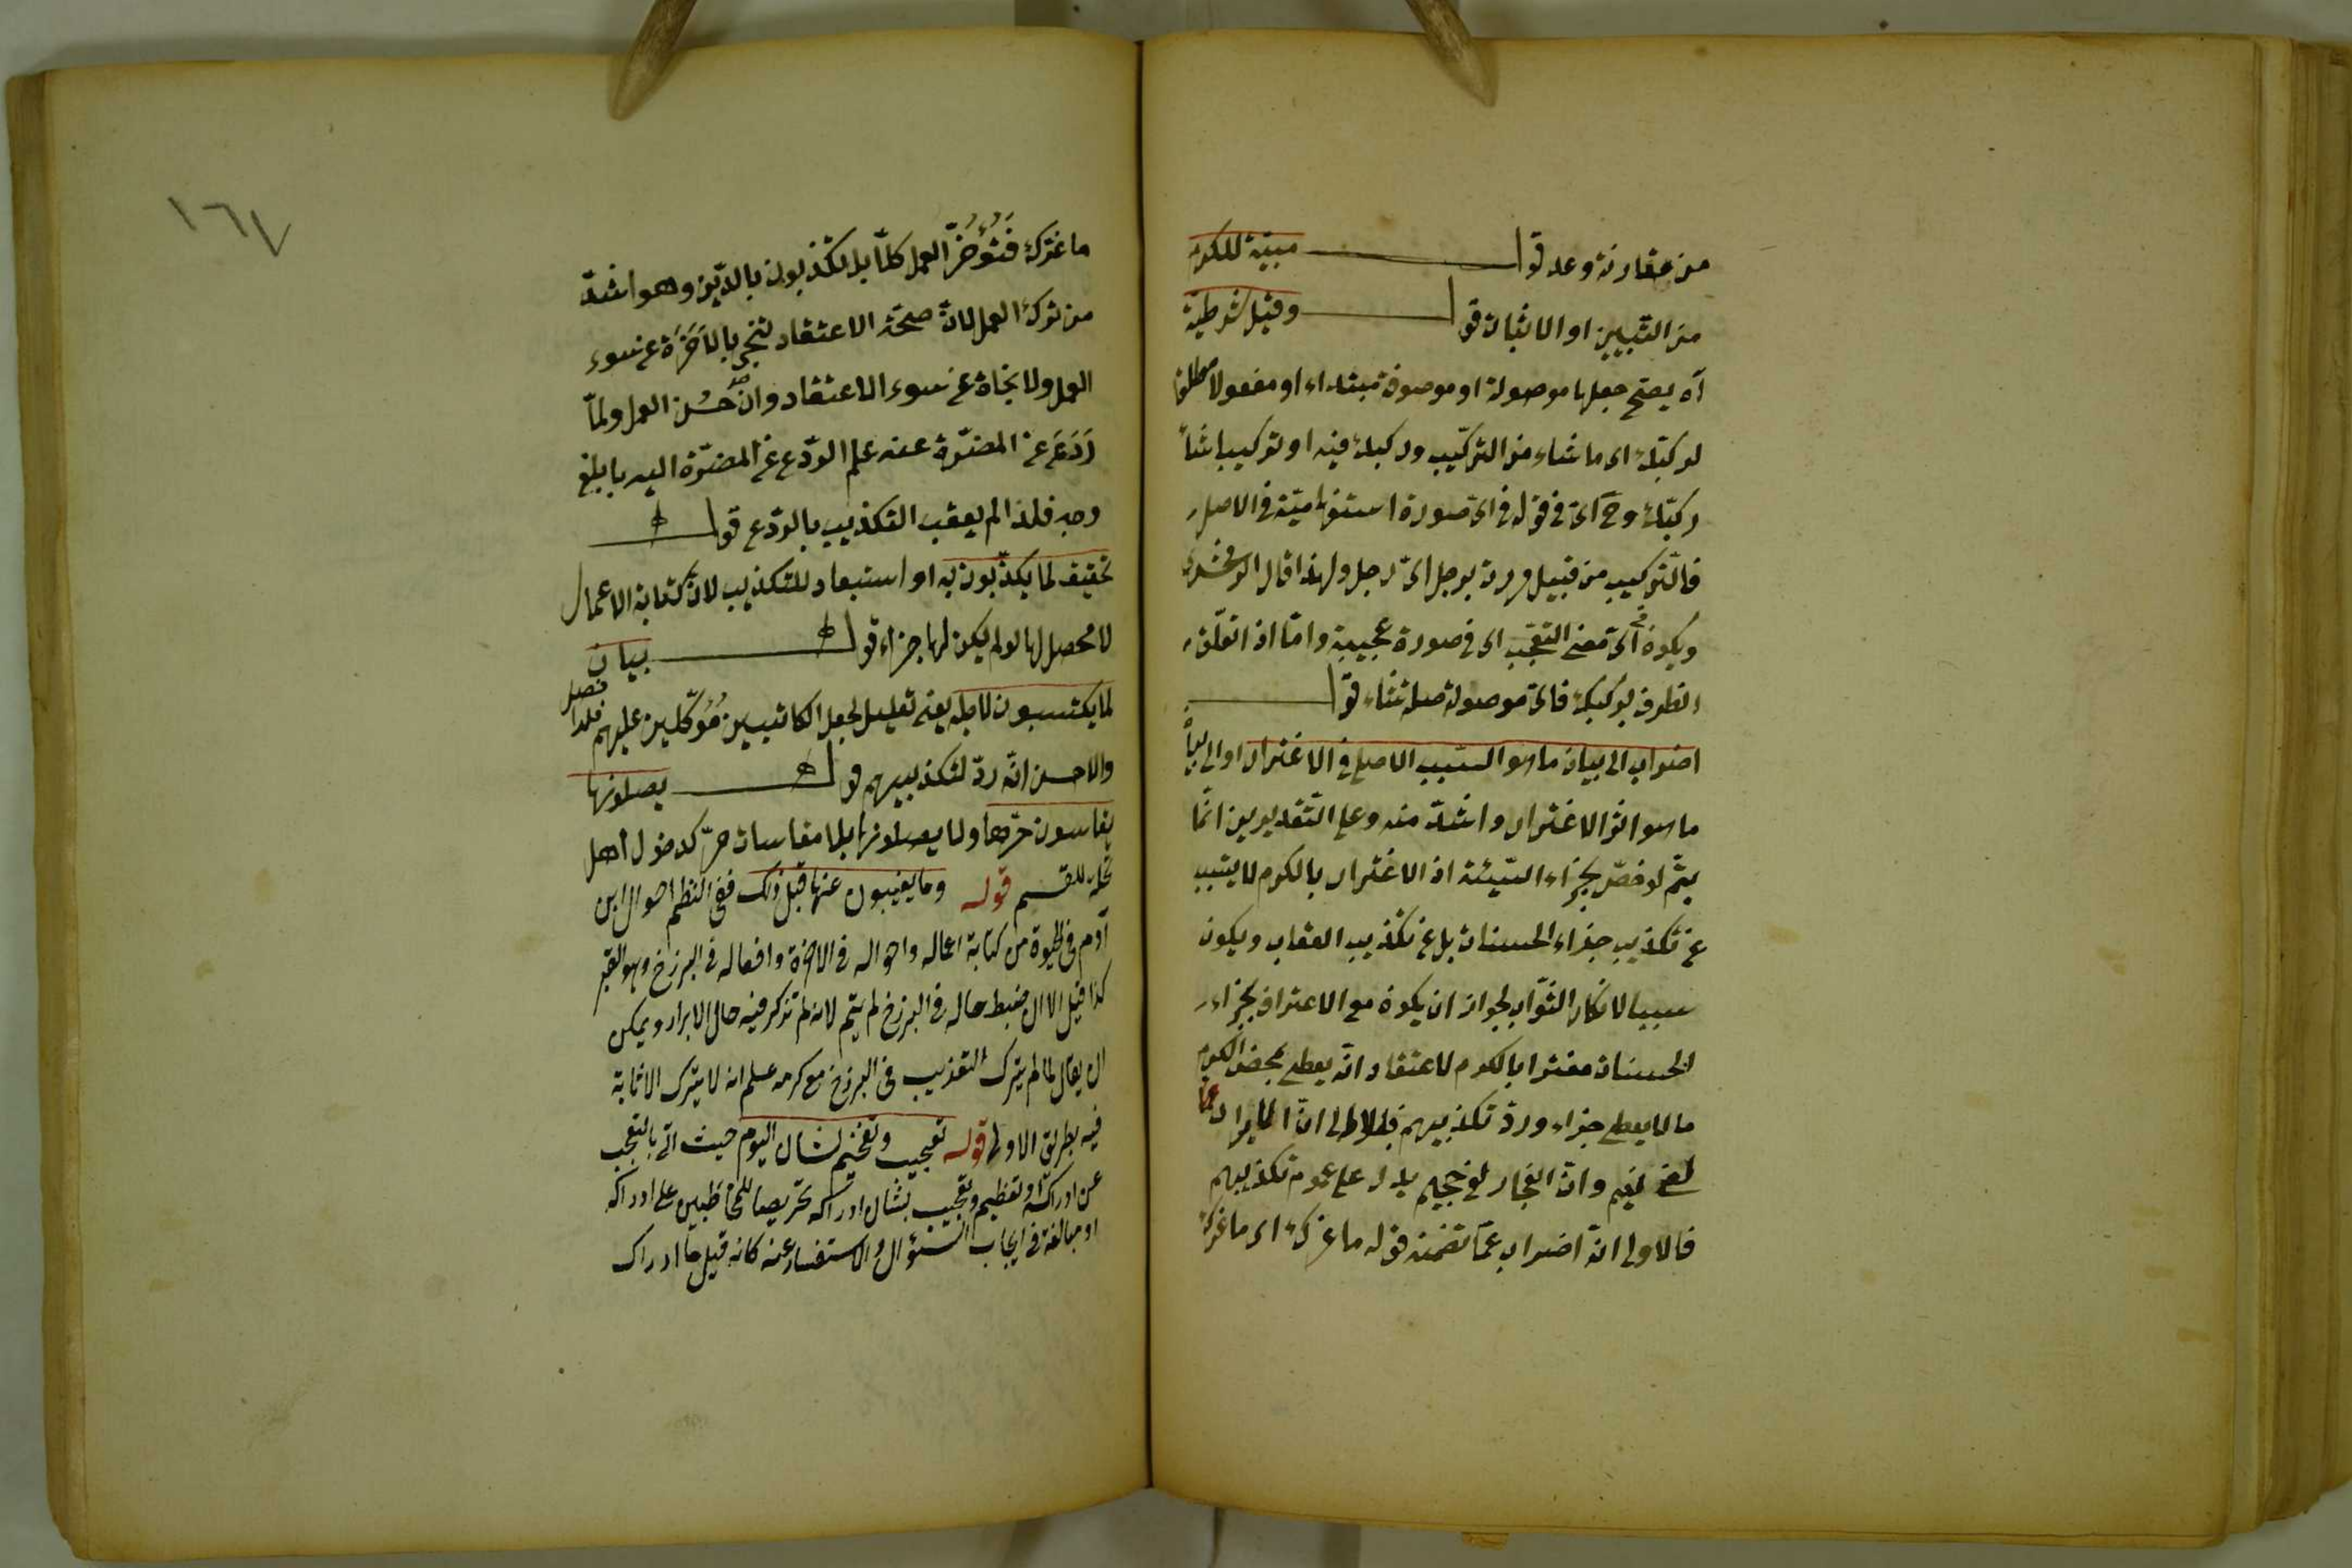 من مقارنة وعد قوله مبينة للكرم
من التبيين او الاثبات قوله وقيل شرطية
آه يصح جعلها موصولة او موصوفة مبتداء او مفعولا مطلقا
لركبك اى ما شاء من التركيب ركبك فيه او تركيبا شاء
ركبك وح اى في قوله في اى صورة استفهامية في الاصل
فالتركيب من قبيل مررت برجل اى رجل ولهذا قال الزمخشرى
ويكون في اى معنى التعجب اى في صورة عجيبة واما اذا تعلق
الظرف بركبك فاى موصولة صلة شاء قوله
اضراب الى بيان ما هو السبب الاصلى في الاغترار او الى بيان
ما هو اثر الاغترار واشد منه وعلى التقديرين انما
يتم لو خص بجزاء السيئة اذ الاغترار بالكرم لا يتسبب
عن تكذيب جزاء الحسنات بل عن تكذيب العقاب ويكون
سببا لانكار الثواب لجواز ان يكون مع الاعتراف بجزاء
الحسنات مغترا بالكرم لاعتقاد انه يعطى بمحض الكرم
ما لا يعطى جزاء ورد تكذيبهم ان الابرار
لفي نعيم وان الفجار لفي جحيم يدل على عموم تكذيبهم
فالاولى انه اضراب عما تضمنه قوله ما غرك اى ما غرك
١٦٧
ما غرك العمل كلا بل تكذبون بالدين وهو اشد
من ترك العمل لان صحة الاعتقاد تنجى بالاخرة عن سوء
العمل ولا نجاة عن سوء الاعتقاد وان حسن العمل ولما
ردع عن المضرة عنه علم الردع عن المضرة اليه بابلغ
وجه فلذا لم يعقب التكذيب بالردع قوله
تحقيق لما يكذبون به او استبعاد للتكذيب لان كتابة الاعمال
لا محصل لها لو لم يكن لها جزاء قوله بيان
لما يكتبون لاجله يعنى تعليل لجعل الكاتبين موكلين عليهم فلذا فصل
والاحسن انه رد لتكذيبهم قوله يصلونها
يقاسون حرها ولا يصلونها بلا مقاسات حر كدخول اهل
للقسم قوله وما يغيبون عنها قبل ذلك ففي النظم احوال ابن
آدم في الحيوة من كتابة اعماله واحواله في الاخرة وافعاله في البرزخ وهو القبر
كذا قيل الا ان ضبط حاله في البرزخ لم يتم لانه لم تذكر فيه حال الابرار ويمكن
ان يقال لما لم يترك التعذيب في البرزخ مع كرمه علم انه لا يترك الاثابة
فيه بطريق الاولى قوله تعجيب وتفخيم لشان اليوم حيث اتى بالتعجب
عن ادراكه او تعظيم وتعجيب بشان ادراكه تحريضا للمخاطبين على ادراكه
او مبالغة في ايجاب السؤال والاستفسار عنه كانه قيل ما ادراك